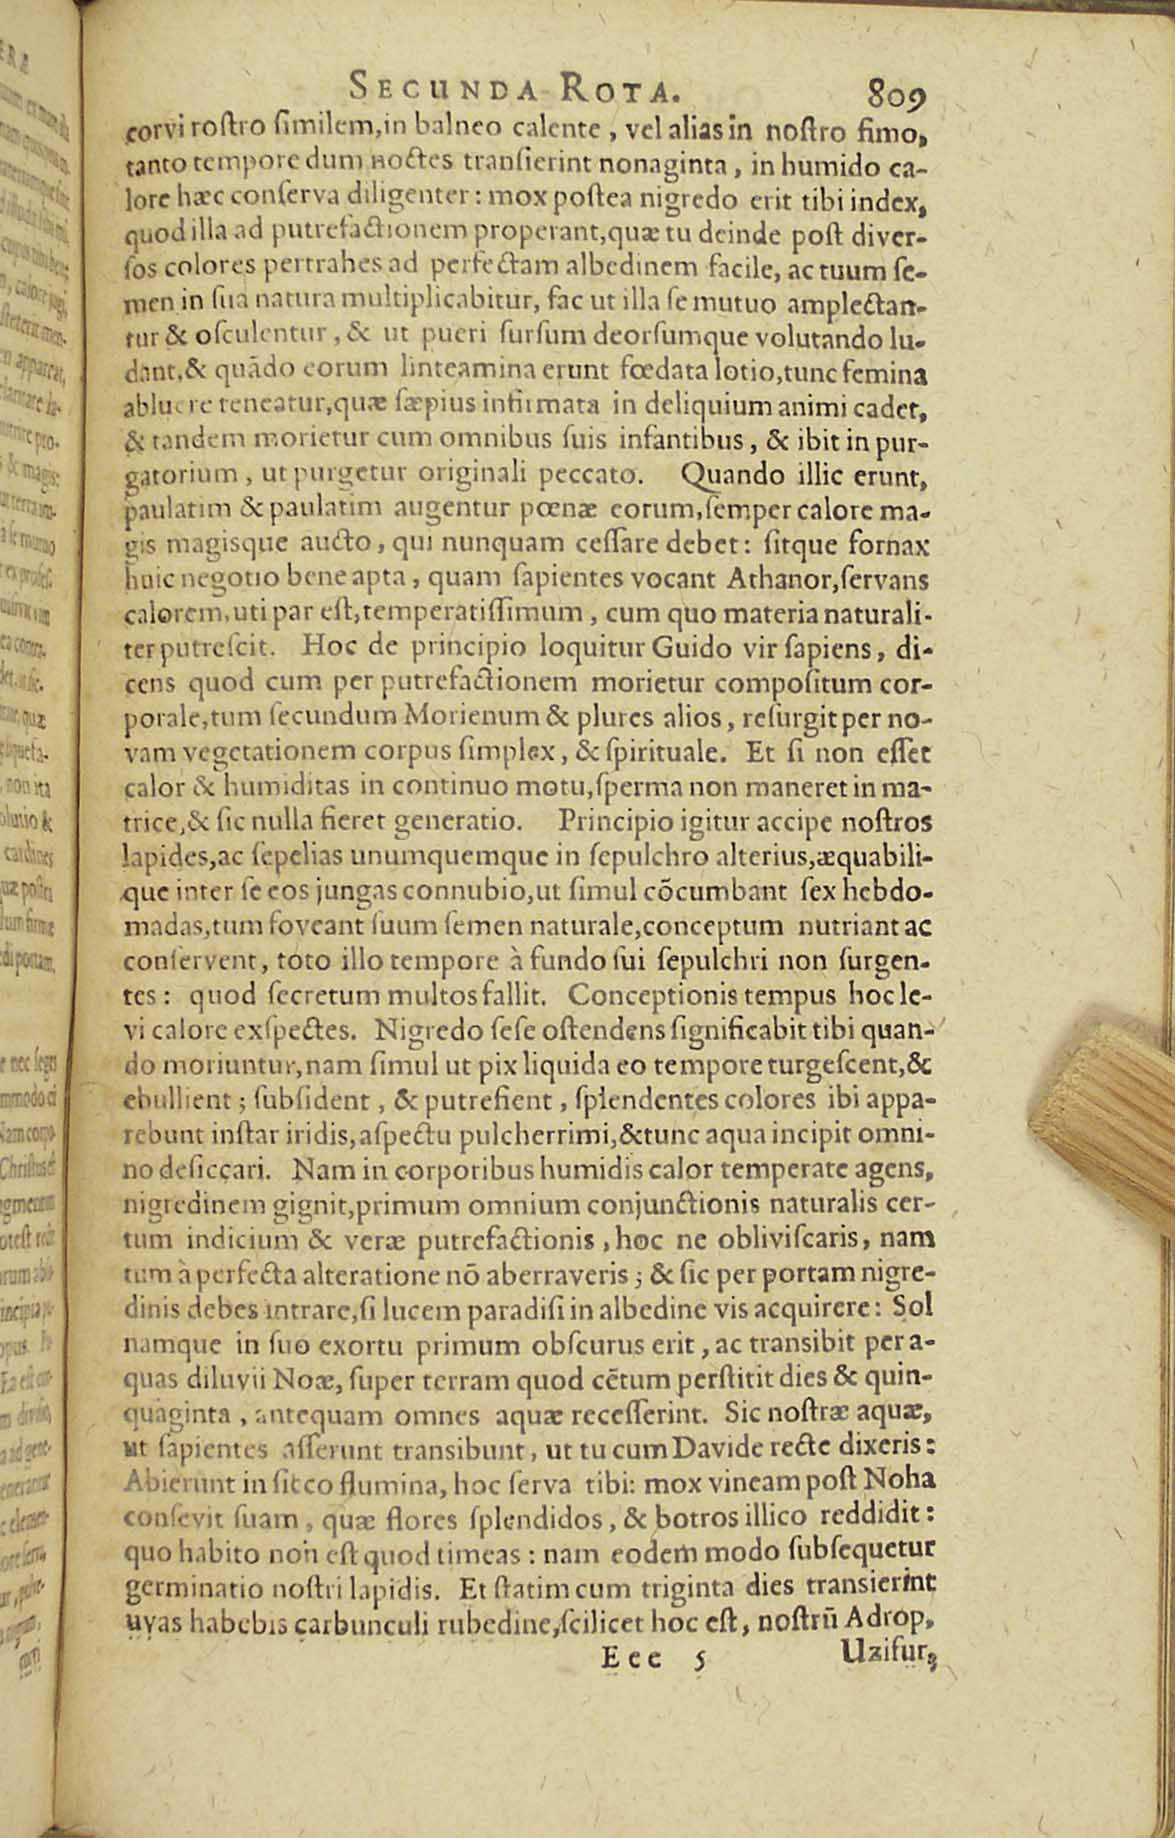 SECUNDA ROTA. 809
corvi rostro similem, in balneo calente, vel alias in nostro fimo,
tanto tempore dum noctes transierint nonaginta, in humido ca-
lore hæc conserva diligenter: mox postea nigredo erit tibi index,
quod illa ad putrefactionem properant, quæ tu deinde post diver-
sos colores pertrahes ad perfectam albedinem facile, ac tuum se-
men in sua natura multiplicabitur, fac ut illa se mutuo amplectan-
tur & osculentur, & ut pueri sursum deorsumque volutando lu-
dant, & quādo eorum linteamina erunt fœdata lotio, tunc femina
abluere teneatur, quæ sæpius infirmata in deliquium animi cadet,
& tandem morietur cum omnibus suis infantibus, & ibit in pur-
gatorium, ut purgetur originali peccato. Quando illic erunt,
paulatim & paulatim augentur pœnæ eorum, semper calore ma-
gis magisque aucto, qui nunquam cessare debet: sitque fornax
huic negotio bene apta, quam sapientes vocant Athanor, servans
calorem, uti par est, temperatissimum, cum quo materia naturali-
ter putrescit. Hoc de principio loquitur Guido vir sapiens, di-
cens quod cum per putrefactionem morietur compositum cor-
porale, tum secundum Morienum & plures alios, resurgit per no-
vam vegetationem corpus simplex, & spirituale. Et si non esset
calor & humiditas in continuo motu, sperma non maneret in ma-
trice, & sic nulla fieret generatio. Principio igitur accipe nostros
lapides, ac sepelias unumquemque in sepulchro alterius, æquabili-
que inter se eos jungas connubio, ut simul cōcumbant sex hebdo-
madas, tum foveant suum semen naturale, conceptum nutriant ac
conservent, toto illo tempore à fundo sui sepulchri non surgen-
tes: quod secretum multos fallit. Conceptionis tempus hoc le-
vi calore exspectes. Nigredo sese ostendens significabit tibi quan-
do moriuntur, nam simul ut pix liquida eo tempore turgescent, &
ebullient; subsident, & putrefient, splendentes colores ibi appa-
rebunt instar iridis, aspectu pulcherrimi, & tunc aqua incipit omni-
no desiccari. Nam in corporibus humidis calor temperate agens,
nigredinem gignit, primum omnium conjunctionis naturalis cer-
tum indicium & veræ putrefactionis, hoc ne obliviscaris, nam
tum à perfecta alteratione nō aberraveris; & sic per portam nigre-
dinis debes intrare, si lucem paradisi in albedine vis acquirere: Sol
namque in suo exortu primum obscurus erit, ac transibit per a-
quas diluvii Noæ, super terram quod cētum perstitit dies & quin-
quaginta, antequam omnes aquæ recesserint. Sic nostræ aquæ,
ut sapientes asserunt transibunt, ut tu cum Davide recte dixeris:
Abierunt in sicco flumina, hoc serva tibi: mox vineam post Noha
consevit suam, quæ flores splendidos, & botros illico reddidit:
quo habito non est quod timeas: nam eodem modo subsequetur
germinatio nostri lapidis. Et statim cum triginta dies transierint
uvas habebis carbunculi rubedine, scilicet hoc est, nostrū Adrop,
Eee 5 Uzifur,